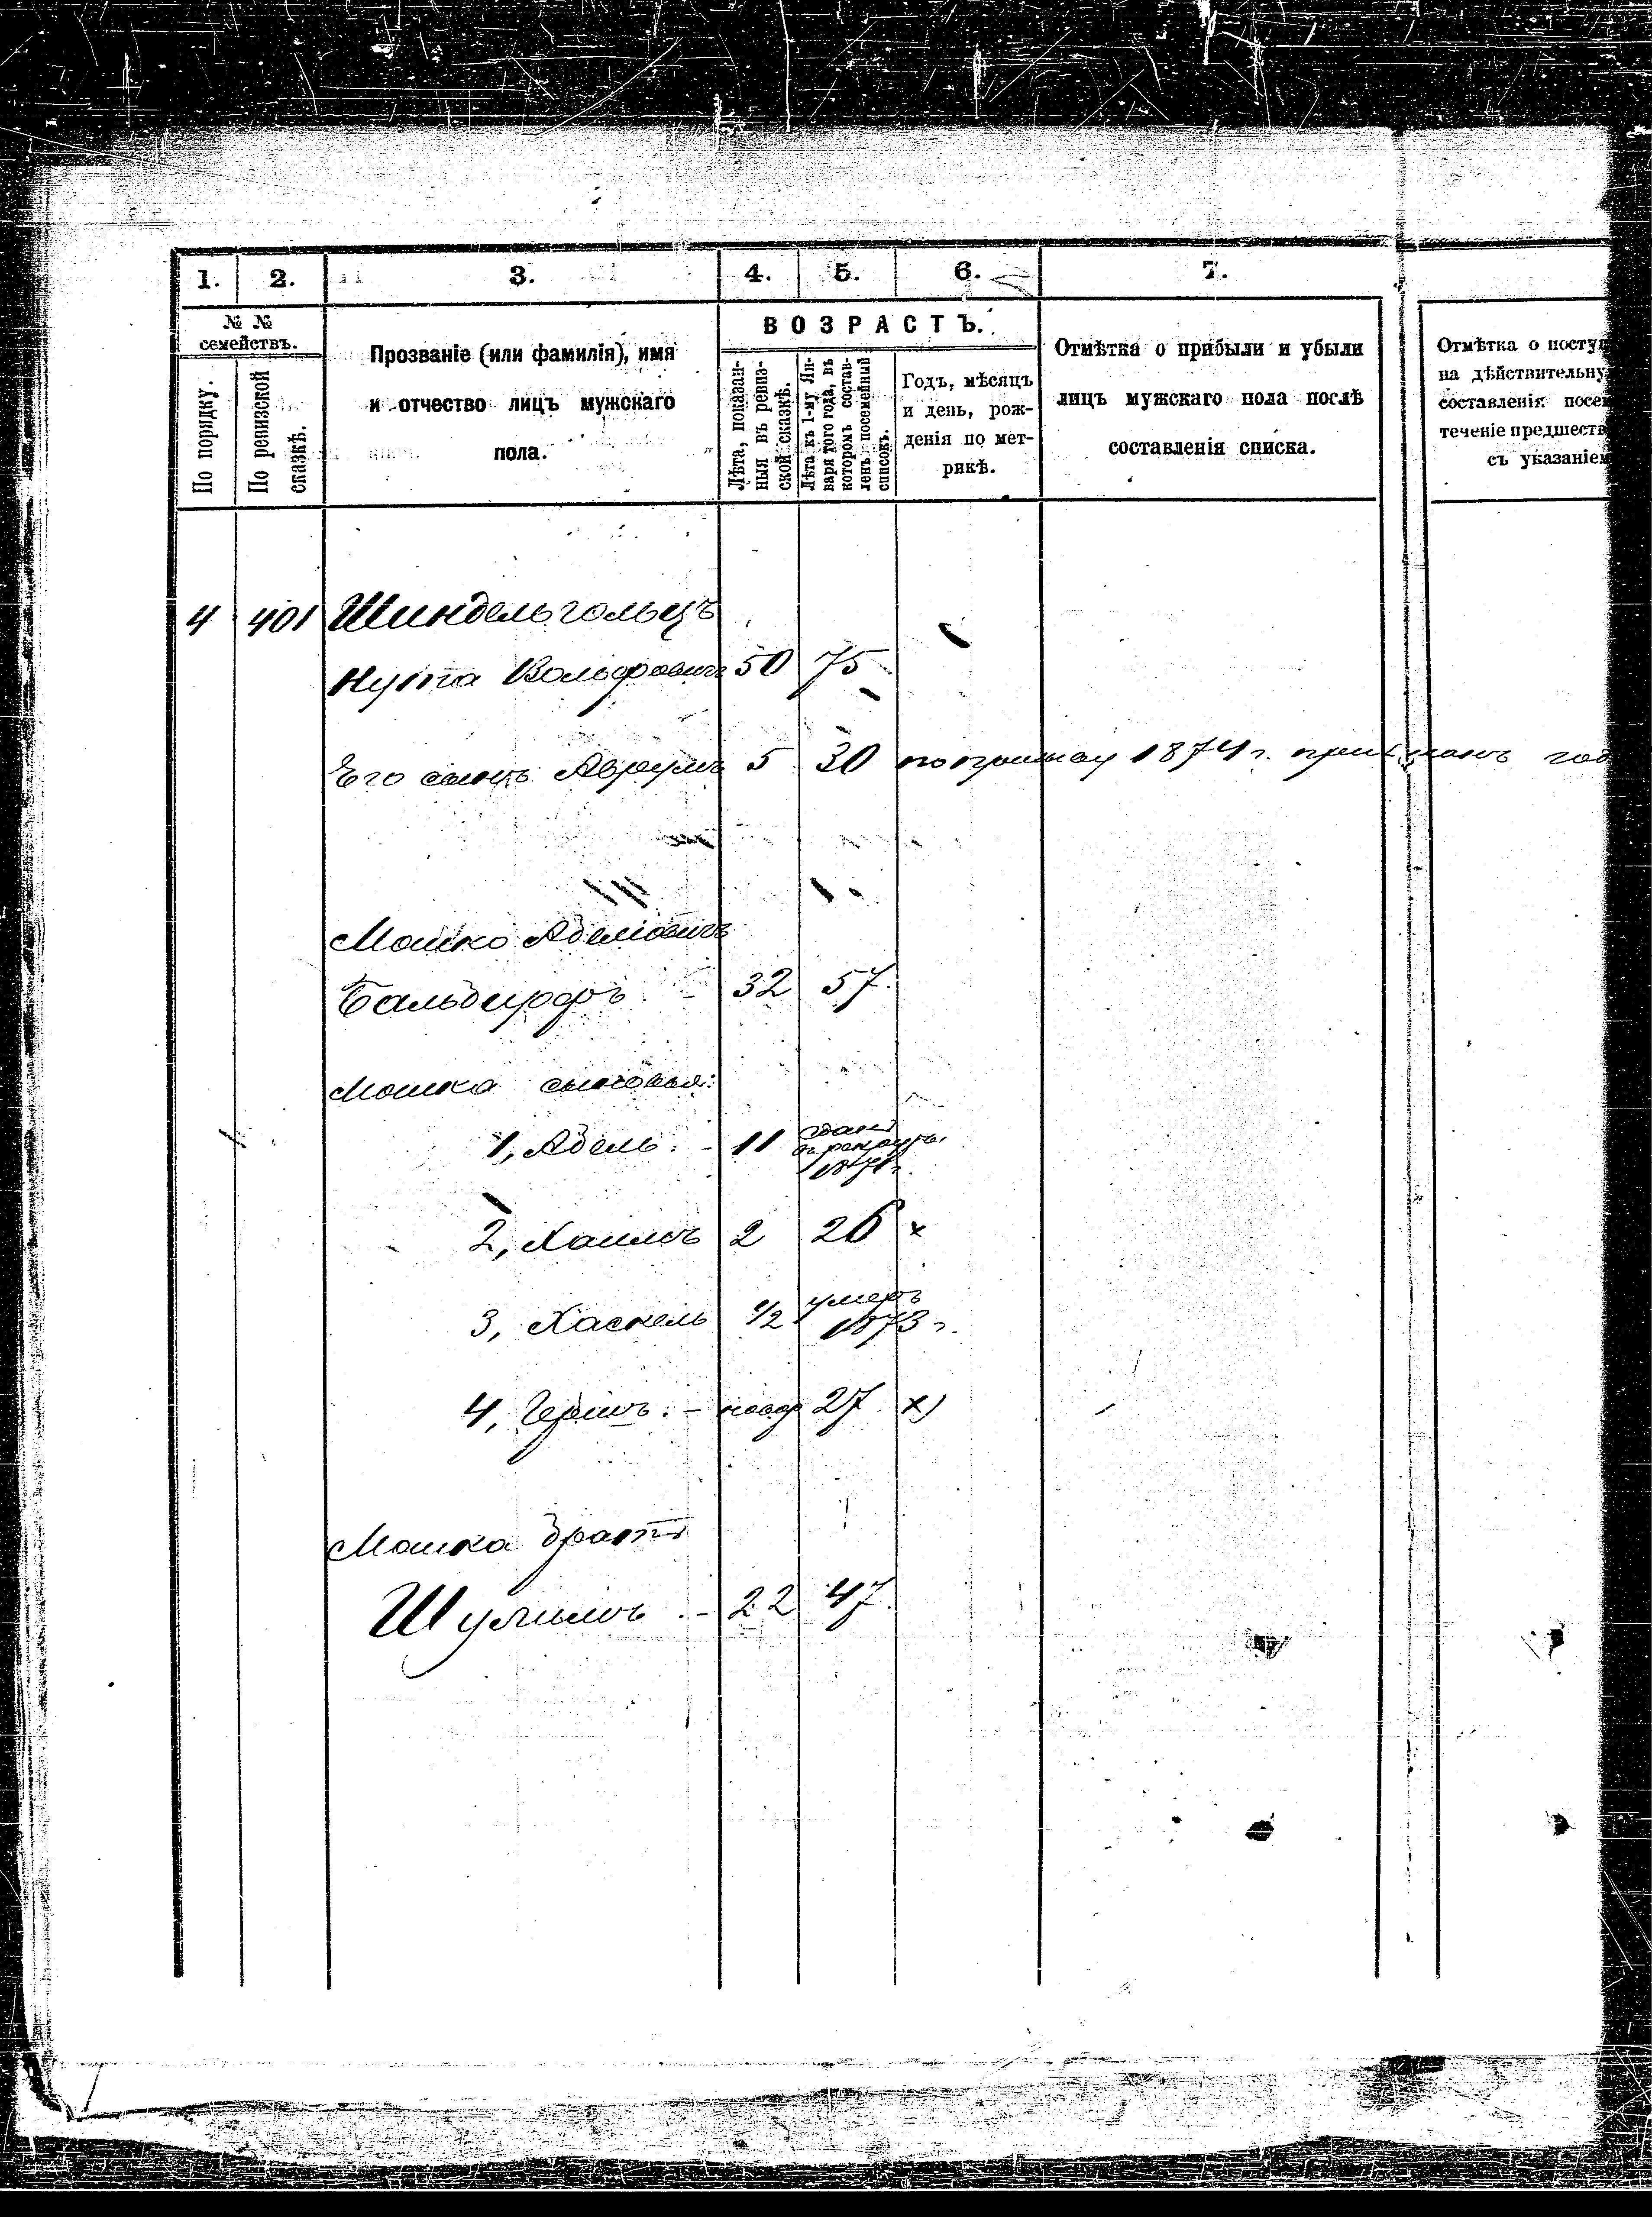 1. 2. 3. 4. 5. 6. 7.
№ №
семействъ.
По порядку.
По ревизской
сказкѣ.
Прозваніе (или фамилія), имя
и отчество лицъ мужскаго
пола.
ВОЗРАСТЪ.
Лѣта, показан-
ныя въ ревиз-
ской сказкѣ.
Лѣта къ 1-му Ян-
варя того года, въ
которомъ состав-
ленъ посемейный
списокъ.
Годъ, мѣсяцъ
и день, рож-
денія по мет-
рикѣ.
Отмѣтка о прибыли и убыли
лицъ мужскаго пола послѣ
составленія списка.
Отмѣтка о посту
на дѣйствительну
составленія посе
теченіе предшеств
съ указаніем
4 401 Шиндельгольцъ
Нута Вольфовичъ 50 75
Его сынъ Аврумъ 5 30 по призыву 1874 г. признанъ год
Мошко Аделіовичъ
Бальдирфъ 32 57.
Мошка сыновья:
1, Адель. - 11 сданъ
въ рекруты
1871 г.
2, Хаимъ 2 26 х
3, Хаскель 1/2 умеръ
1873 г.
4, Гершъ. - новор 27. х)
Мошка братъ
Шулимъ. - 22 47.